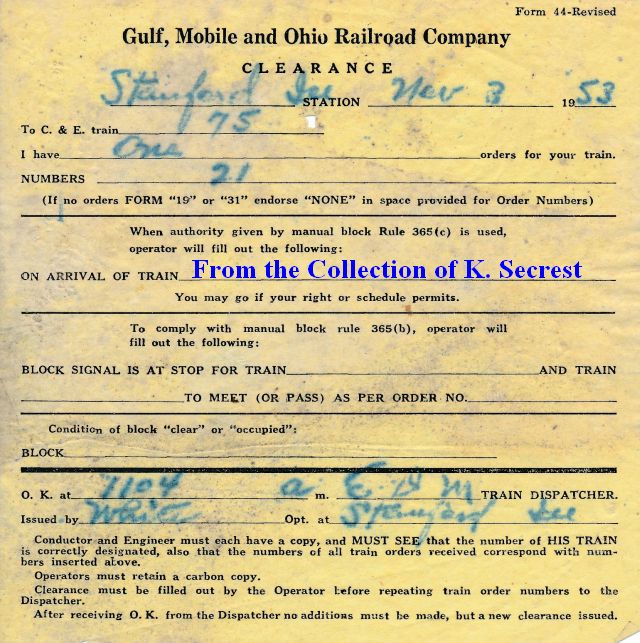 Form 44-Revised
Gulf, Mobile and Ohio Railroad Company
CLEARANCE
Stanford Ill STATION Nov 3 1953
To C. & E. train 75
I have One orders for your train.
NUMBERS 21
(If no orders FORM "19" or "31" endorse "NONE" in space provided for Order Numbers)
When authority given by manual block Rule 365(c) is used,
operator will fill out the following:
ON ARRIVAL OF TRAIN From the Collection of K. Secrest
You may go if your right or schedule permits.
To comply with manual block rule 365(b), operator will
fill out the following:
BLOCK SIGNAL IS AT STOP FOR TRAIN AND TRAIN
TO MEET (OR PASS) AS PER ORDER NO.
Condition of block "clear" or "occupied":
BLOCK
O. K. at 1104 a m. E H M TRAIN DISPATCHER.
Issued by White Opt. at Stanford Ill
Conductor and Engineer must each have a copy, and MUST SEE that the number of HIS TRAIN
is correctly designated, also that the numbers of all train orders received correspond with num-
bers inserted above.
Operators must retain a carbon copy.
Clearance must be filled out by the Operator before repeating train order numbers to the
Dispatcher.
After receiving O. K. from the Dispatcher no additions must be made, but a new clearance issued.